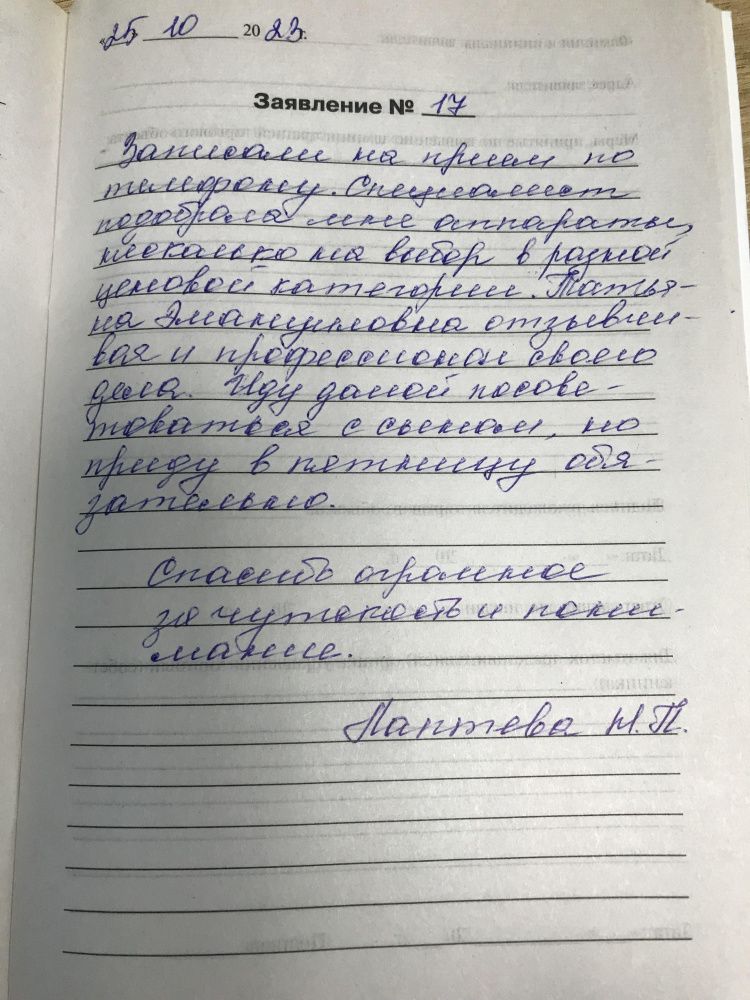 «25» 10 2023г.
Заявление № 17
Записали на прием по
телефону. Специалист
подобрала мне аппараты,
несколько на выбор в разной
ценовой категории. Татья-
на Эмануиловна отзывчи-
вая и профессионал своего
дела. Иду домой посове-
товаться с сыном, но
приду в пятницу обя-
зательно.
Спасибо огромное
за чуткость и пони-
мание.
Лаптева Н.П.